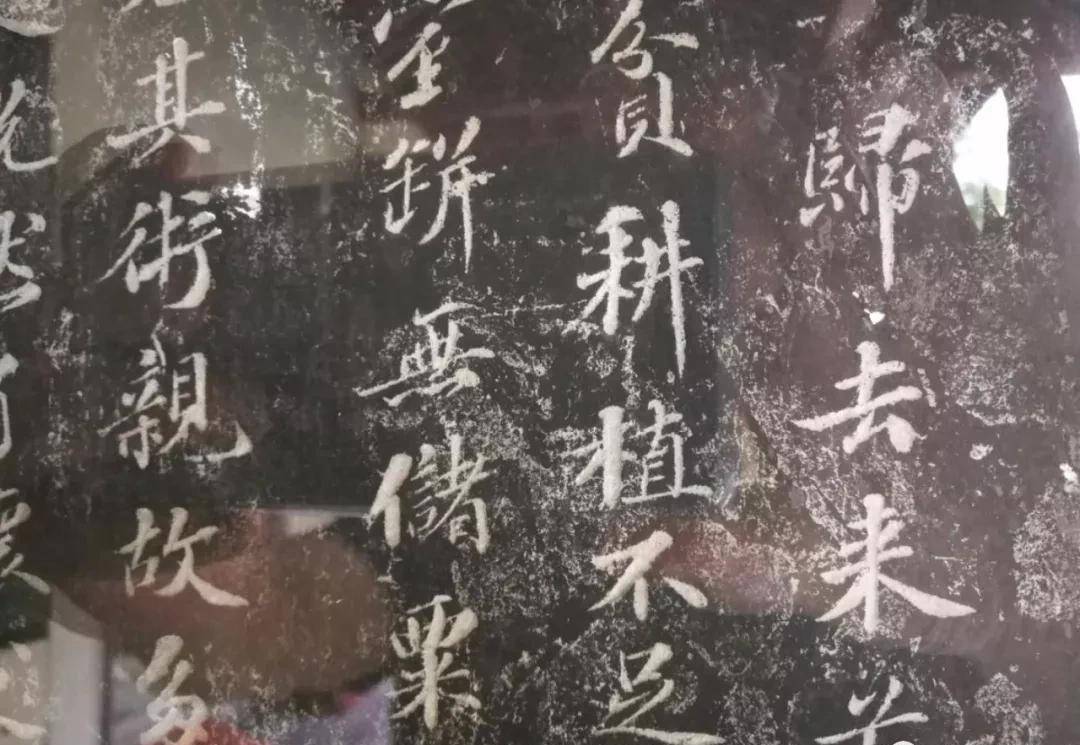 歸去来兮
貧耕植不足
室缾無儲粟
其術親故多